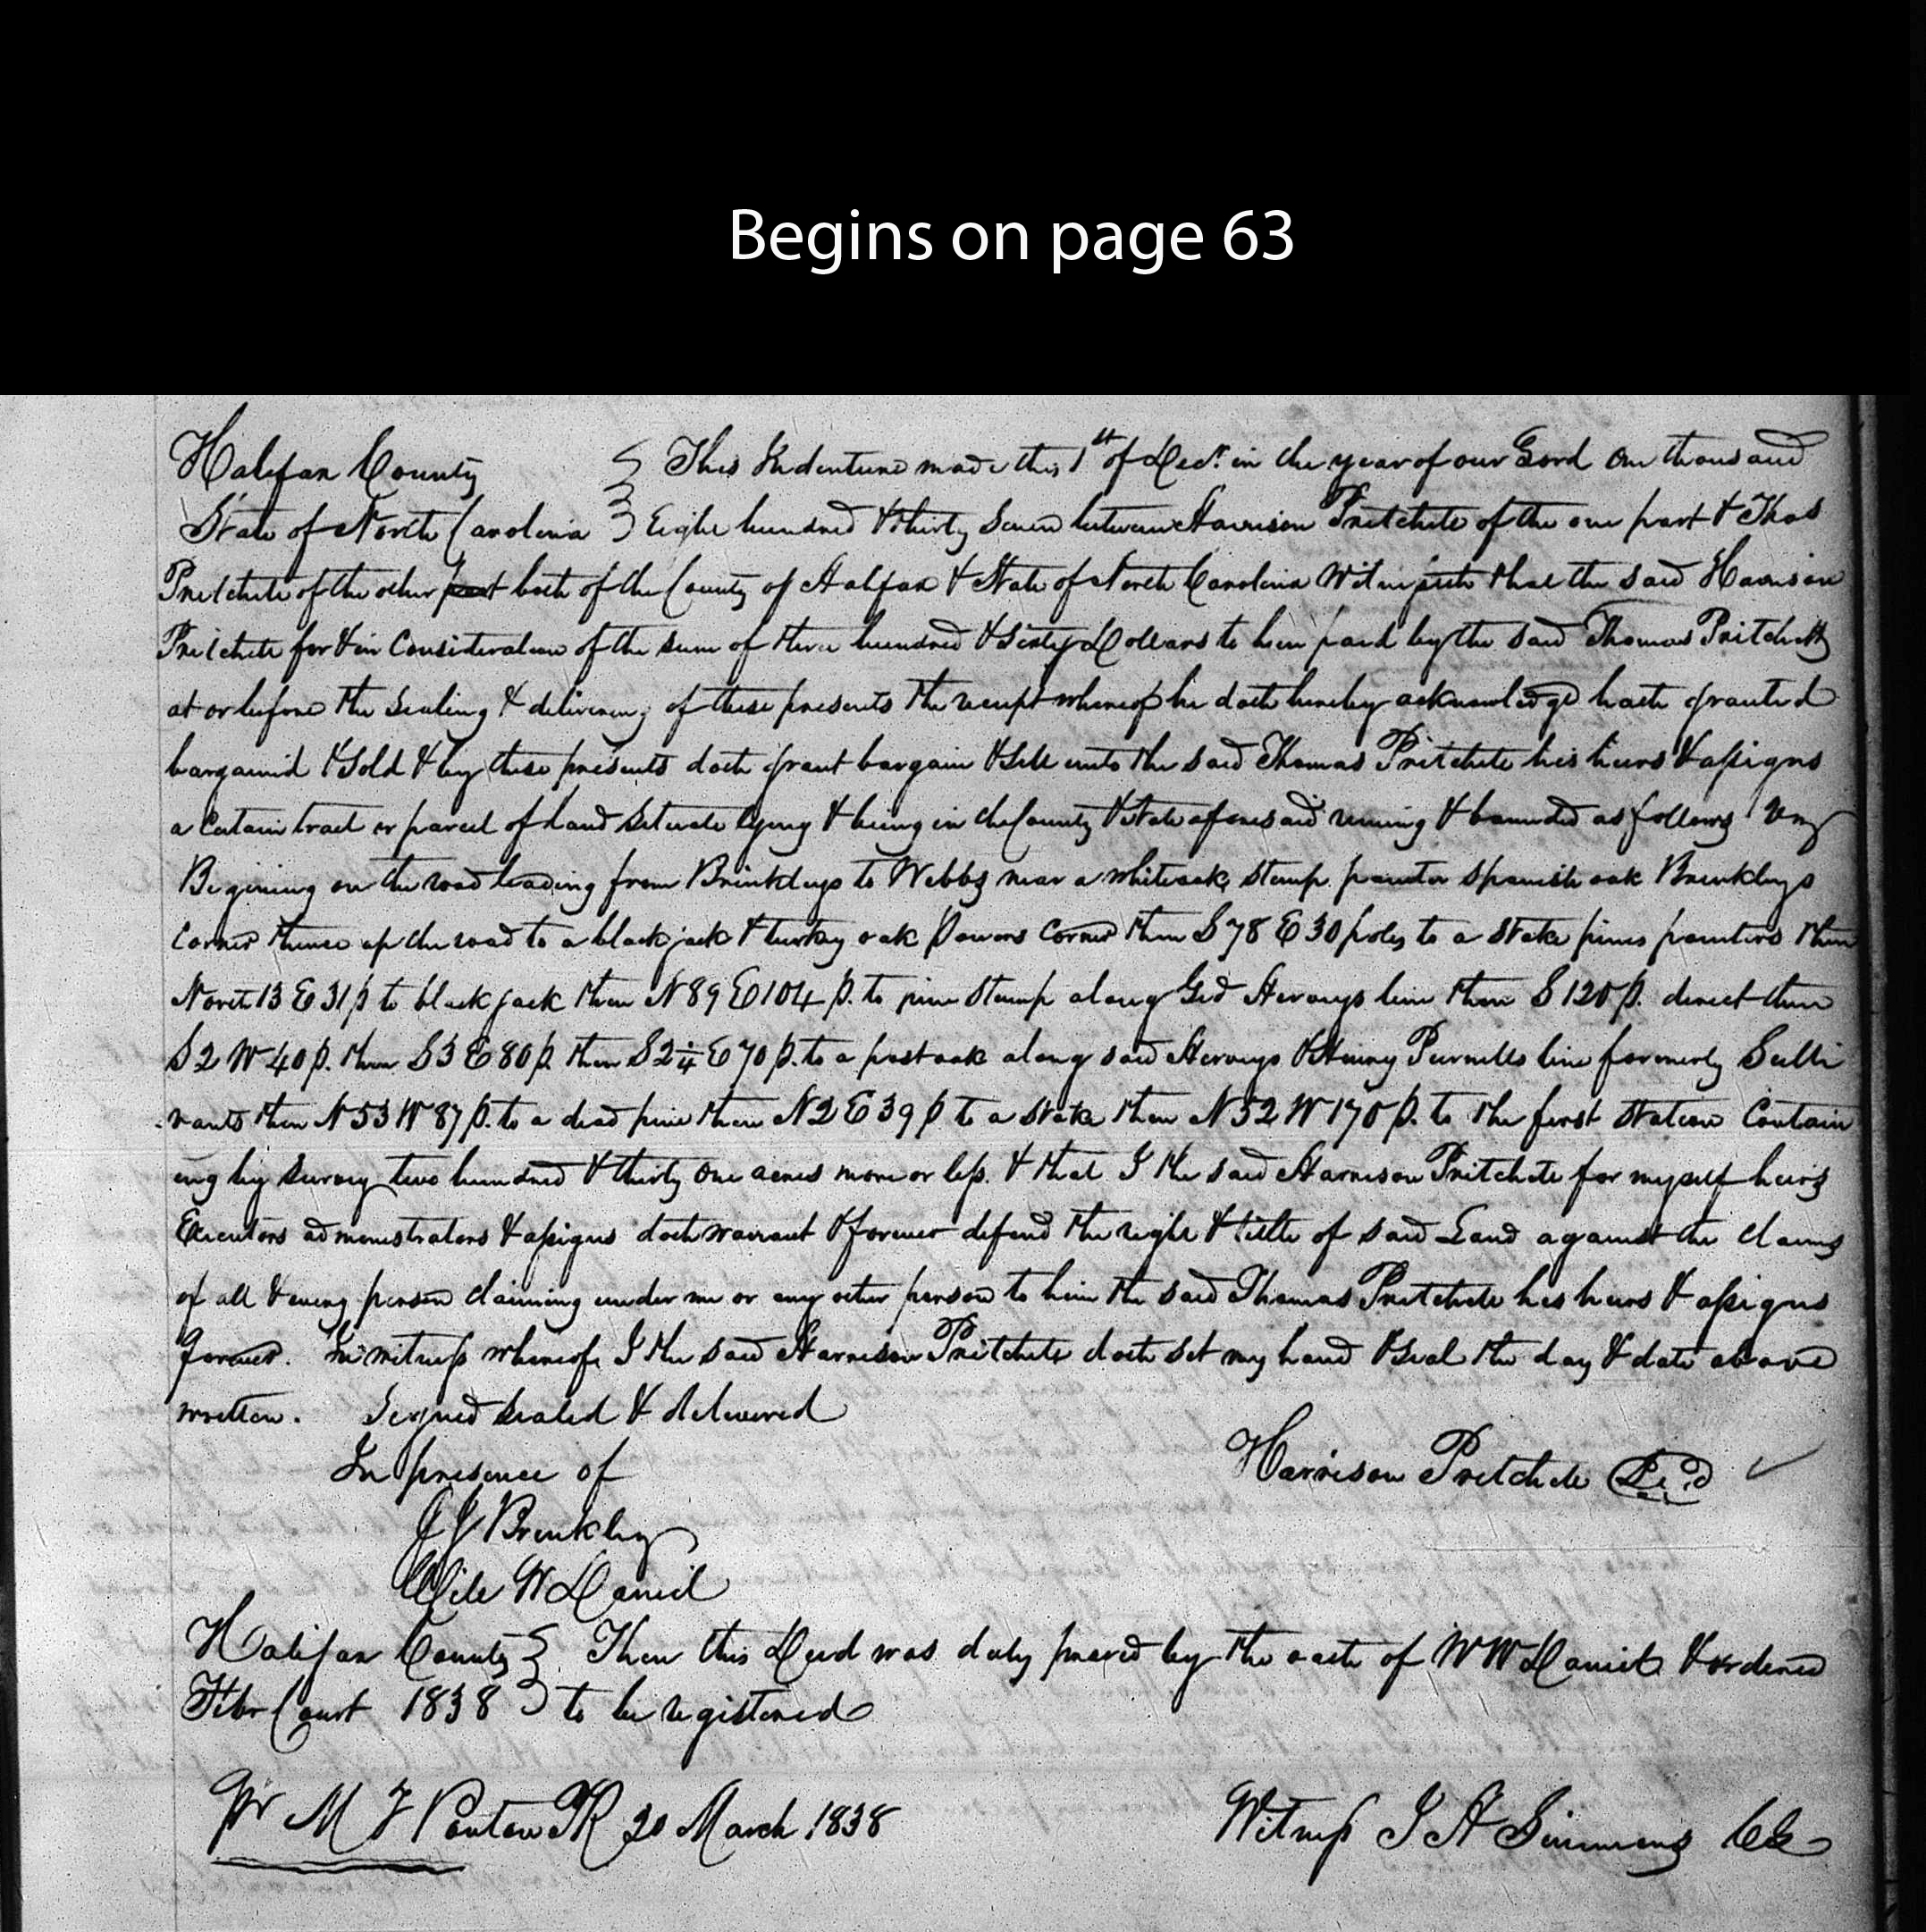 Begins on page 63
Halifax County } This Indenture made this 1st of Decr. in the year of our Lord One thousand
State of North Carolina } Eight hundred & thirty Seven between Harrison Pritchete of the one part & Thos
Pritchete of the other part both of the County of Halifax & State of North Carolina Witnesseth that the said Harrison
Pritchete for & in Consideration of the sum of three hundred & Sixty Dollars to him paid by the said Thomas Pritchett
at or before the Sealing & delivering of these presents the receipt whereof he doth hereby acknowledge hath granted
bargained & Sold & by these presents doth grant bargain & Sell unto the said Thomas Pritchete his heirs & assigns
a Certain tract or parcel of Land Situate lying & being in the County & State aforesaid runing & bounded as follows Viz
Begining on the road leading from Brinkleys to Webbs near a whiteoak stump pointer spanish oak Brinkleys
Corner thence up the road to a black jack & turkey oak Powers Corner then S 78 E 30 poles to a Stake pines pointers then
North 13 E 31 p to black jack then N 89 E 104 p. to pine stump along Geo Herveys line then S 120 p. direct then
S 2 W 40 p. then S 3 E 80 p. then S 2¼ E 70 p. to a post oak along said Herveys & Henry Purnells line formerly Sulli
vants then N 53 W 87 p. to a dead pine then N 2 E 39 p to a Stake then N 52 W 170 p. to the first Station Contain
ing by survey two hundred & thirty One acres more or less. & that I the said Harrison Pritchete for myself heirs
Executors administrators & assigns doth warrant & forever defend the right & title of said Land against the claims
of all & every person claiming under me or any other person to him the said Thomas Pritchete his heirs & assigns
forever. In witness whereof I the said Harrison Pritchete doth set my hand & Seal the day & date above
written. Signed sealed & delivered
In presence of Harrison Pritchete
J J Brinkley
Wile W Daniel
Halifax County } Then this Deed was duly proved by the oath of W W Daniel & ordered
Febr Court 1838 } to be registered
Pr M F Ponton PR 20 March 1838 Witness J H Simmons Clk